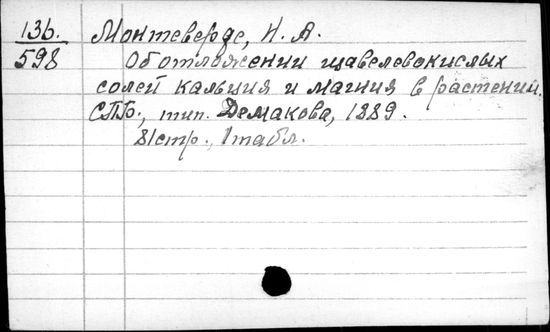 136.
598
Монтеверде, Н. А.
Об отложении щавелевокислых
солей кальция и магния в растении.
СПБ., тип. Демакова, 1889.
81стр., 1табл.